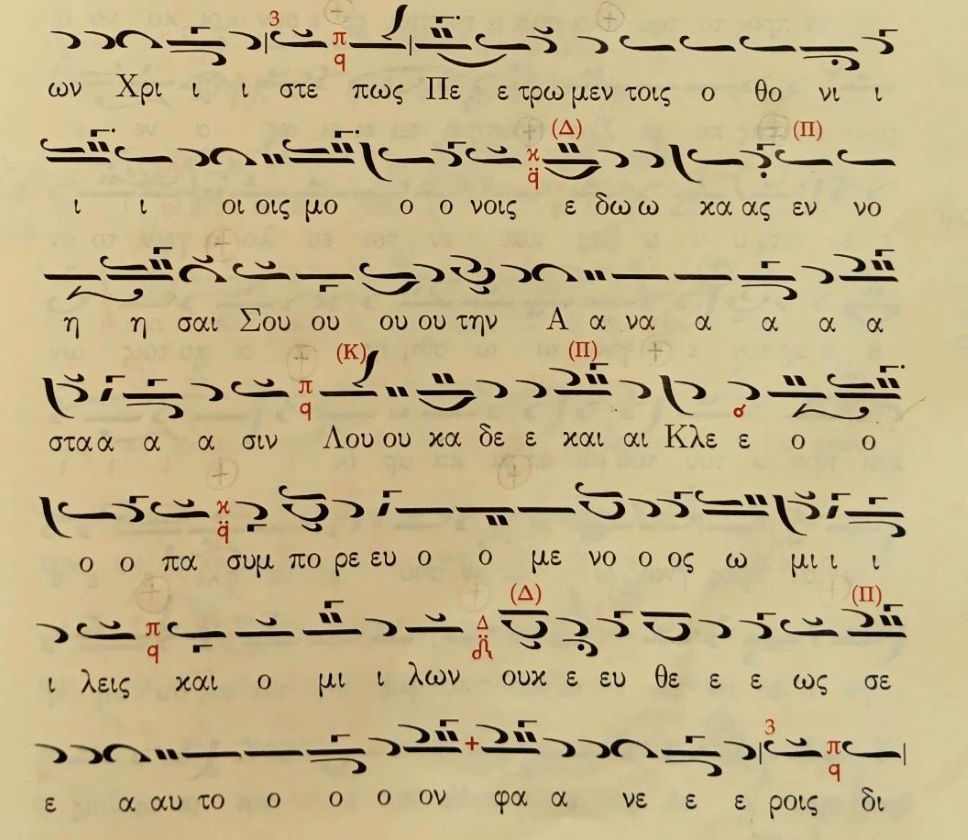 3 π q
ων Χρι ι ι στε πως Πε ε τρω μεν τοις ο θο νι ι
(Δ) (Π) κ q̈
ι ι οι οις μο ο ο νοις ε δω ω κα ας εν νο
η η σαι Σου ου ου ου την Α α να α α α α
(Κ) (Π) π q
στα α α α α σιν Λου ου κα δε ε και αι Κλε ε ο ο
κ q̈
ο ο πα συμ πο ρε ευ ο ο με νο ο ος ω μι ι ι
(Δ) (Π) π q Δ
ι λεις και ο μι ι λων ουκ ε ευ θε ε ε ως σε
3 π q
ε α αυ το ο ο ο ον φα α νε ε ε ροις δι